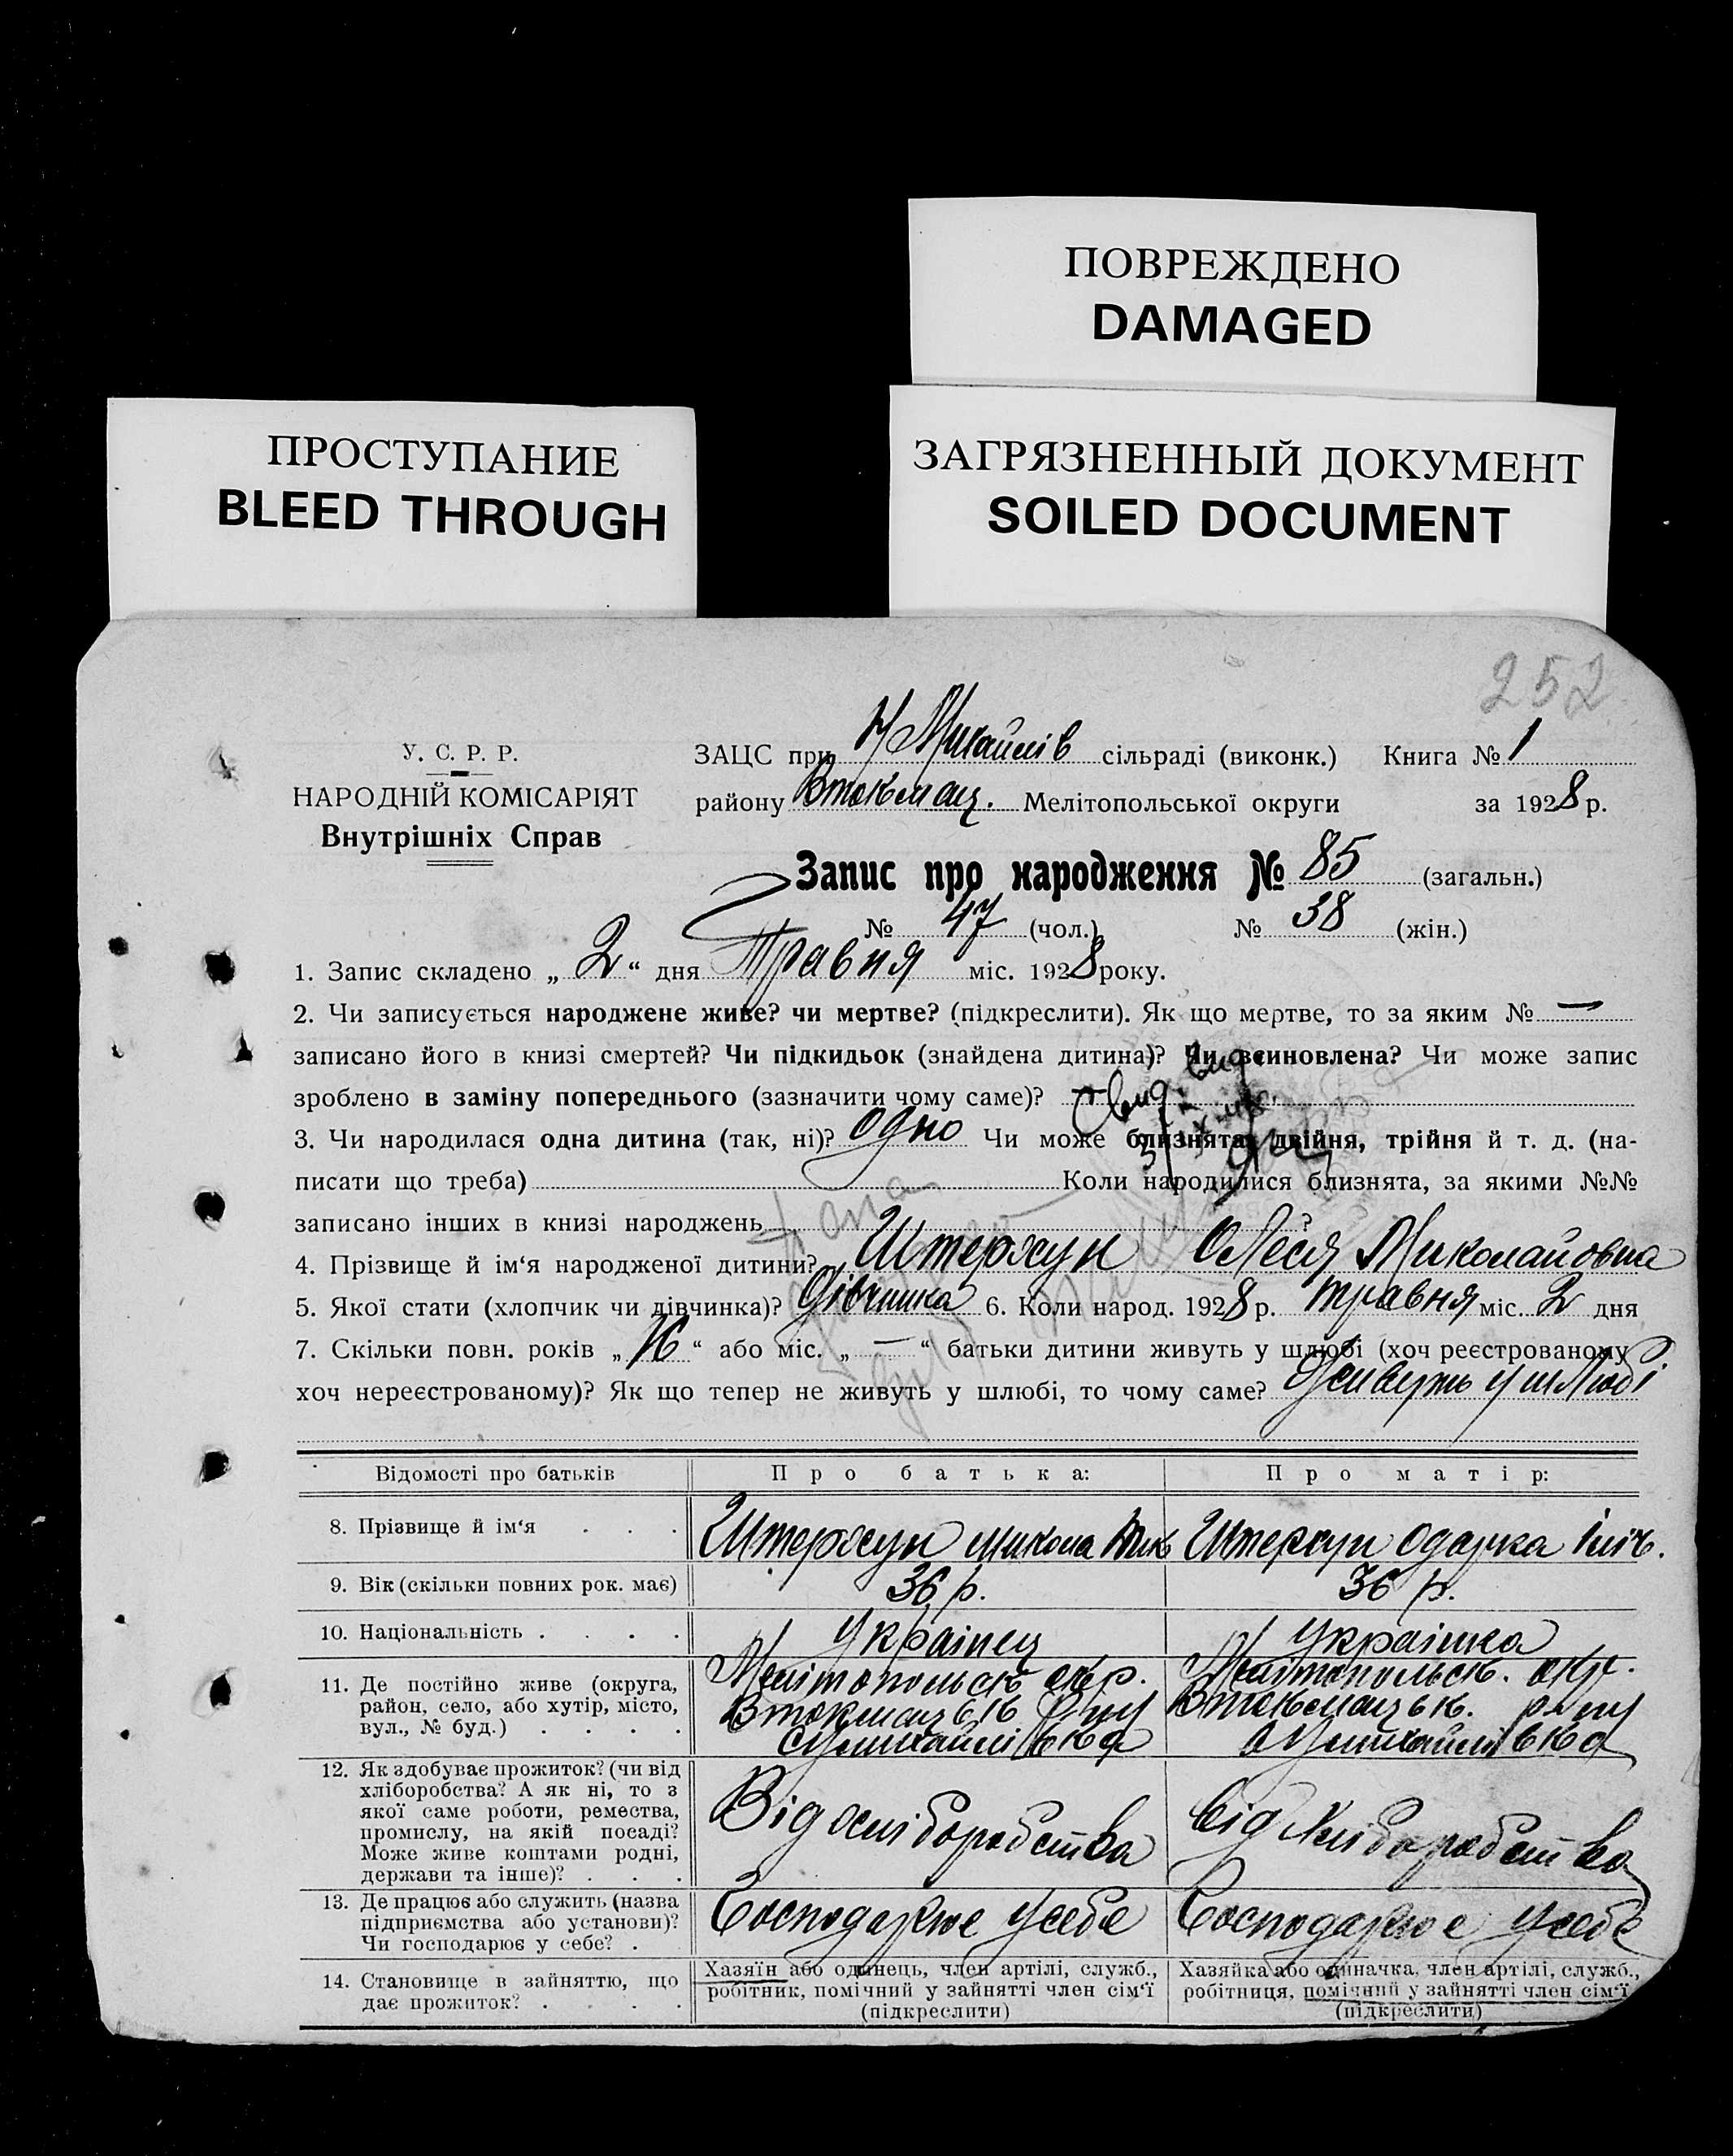 ПОВРЕЖДЕНО
DAMAGED
ПРОСТУПАНИЕ
BLEED THROUGH
ЗАГРЯЗНЕННЫЙ ДОКУМЕНТ
SOILED DOCUMENT
252
У. С. Р. Р.
НАРОДНІЙ КОМІСАРІЯТ
Внутрішніх Справ
ЗАЦС при Михайлів сільраді (виконк.) Книга № 1
району Втокмац. Мелітопольської округи за 1928 р.
Запис про народження № 85 (загальн.)
№ 47 (чол.) № 38 (жін.)
1. Запис складено „ 2 “ дня Травня міс. 1928 року.
2. Чи записується народжене живе? чи мертве? (підкреслити). Як що мертве, то за яким № —
записано його в книзі смертей? Чи підкидьок (знайдена дитина)? Чи всиновлена? Чи може запис
зроблено в заміну попереднього (зазначити чому саме)?
3. Чи народилася одна дитина (так, ні)? одно Чи може близнята, двійня, трійня й т. д. (на-
писати що треба) Коли народилися близнята, за якими №№
записано інших в книзі народжень ?
4. Прізвище й ім‘я народженої дитини? Штерхун Олеся Миколайовна
5. Якої стати (хлопчик чи дівчинка)? дівчинка 6. Коли народ. 1928 р. травня міс. 2 дня
7. Скільки повн. років „ 16 “ або міс. „ — “ батьки дитини живуть у шлюбі (хоч реєстрованому
хоч нереєстрованому)? Як що тепер не живуть у шлюбі, то чому саме? Живуть у шлюбі
Відомості про батьків Про батька: Про матір:
8. Прізвище й ім‘я . . . Штерхун микола Мик Штерхун одарка Іліч.
9. Вік (скільки повних рок. має) 36 р. 36 р.
10. Національність . . . . Українец Українка
11. Де постійно живе (округа, район, село, або хутір, місто, вул., № буд.) . . . .
Мелітопольськ окр.
Втокмацьк р-ну
Мелітопольськ. окр.
Втокмацьк. р-ну
12. Як здобуває прожиток? (чи від хліборобства? А як ні, то з якої саме роботи, ремества, промислу, на якій посаді? Може живе коштами родні, держави та інше)? . . .
Від хліборобства
Від хліборобства
13. Де працює або служить (назва підприємства або установи)? Чи господарює у себе? .
Господарює у себе
Господарює у себе
14. Становище в зайняттю, що дає прожиток? . . . .
Хазяїн або одинець, член артілі, служб., робітник, помічний у зайнятті член сім‘ї (підкреслити)
Хазяйка або одиначка, член артілі, служб., робітниця, помічний у зайнятті член сім‘ї (підкреслити)